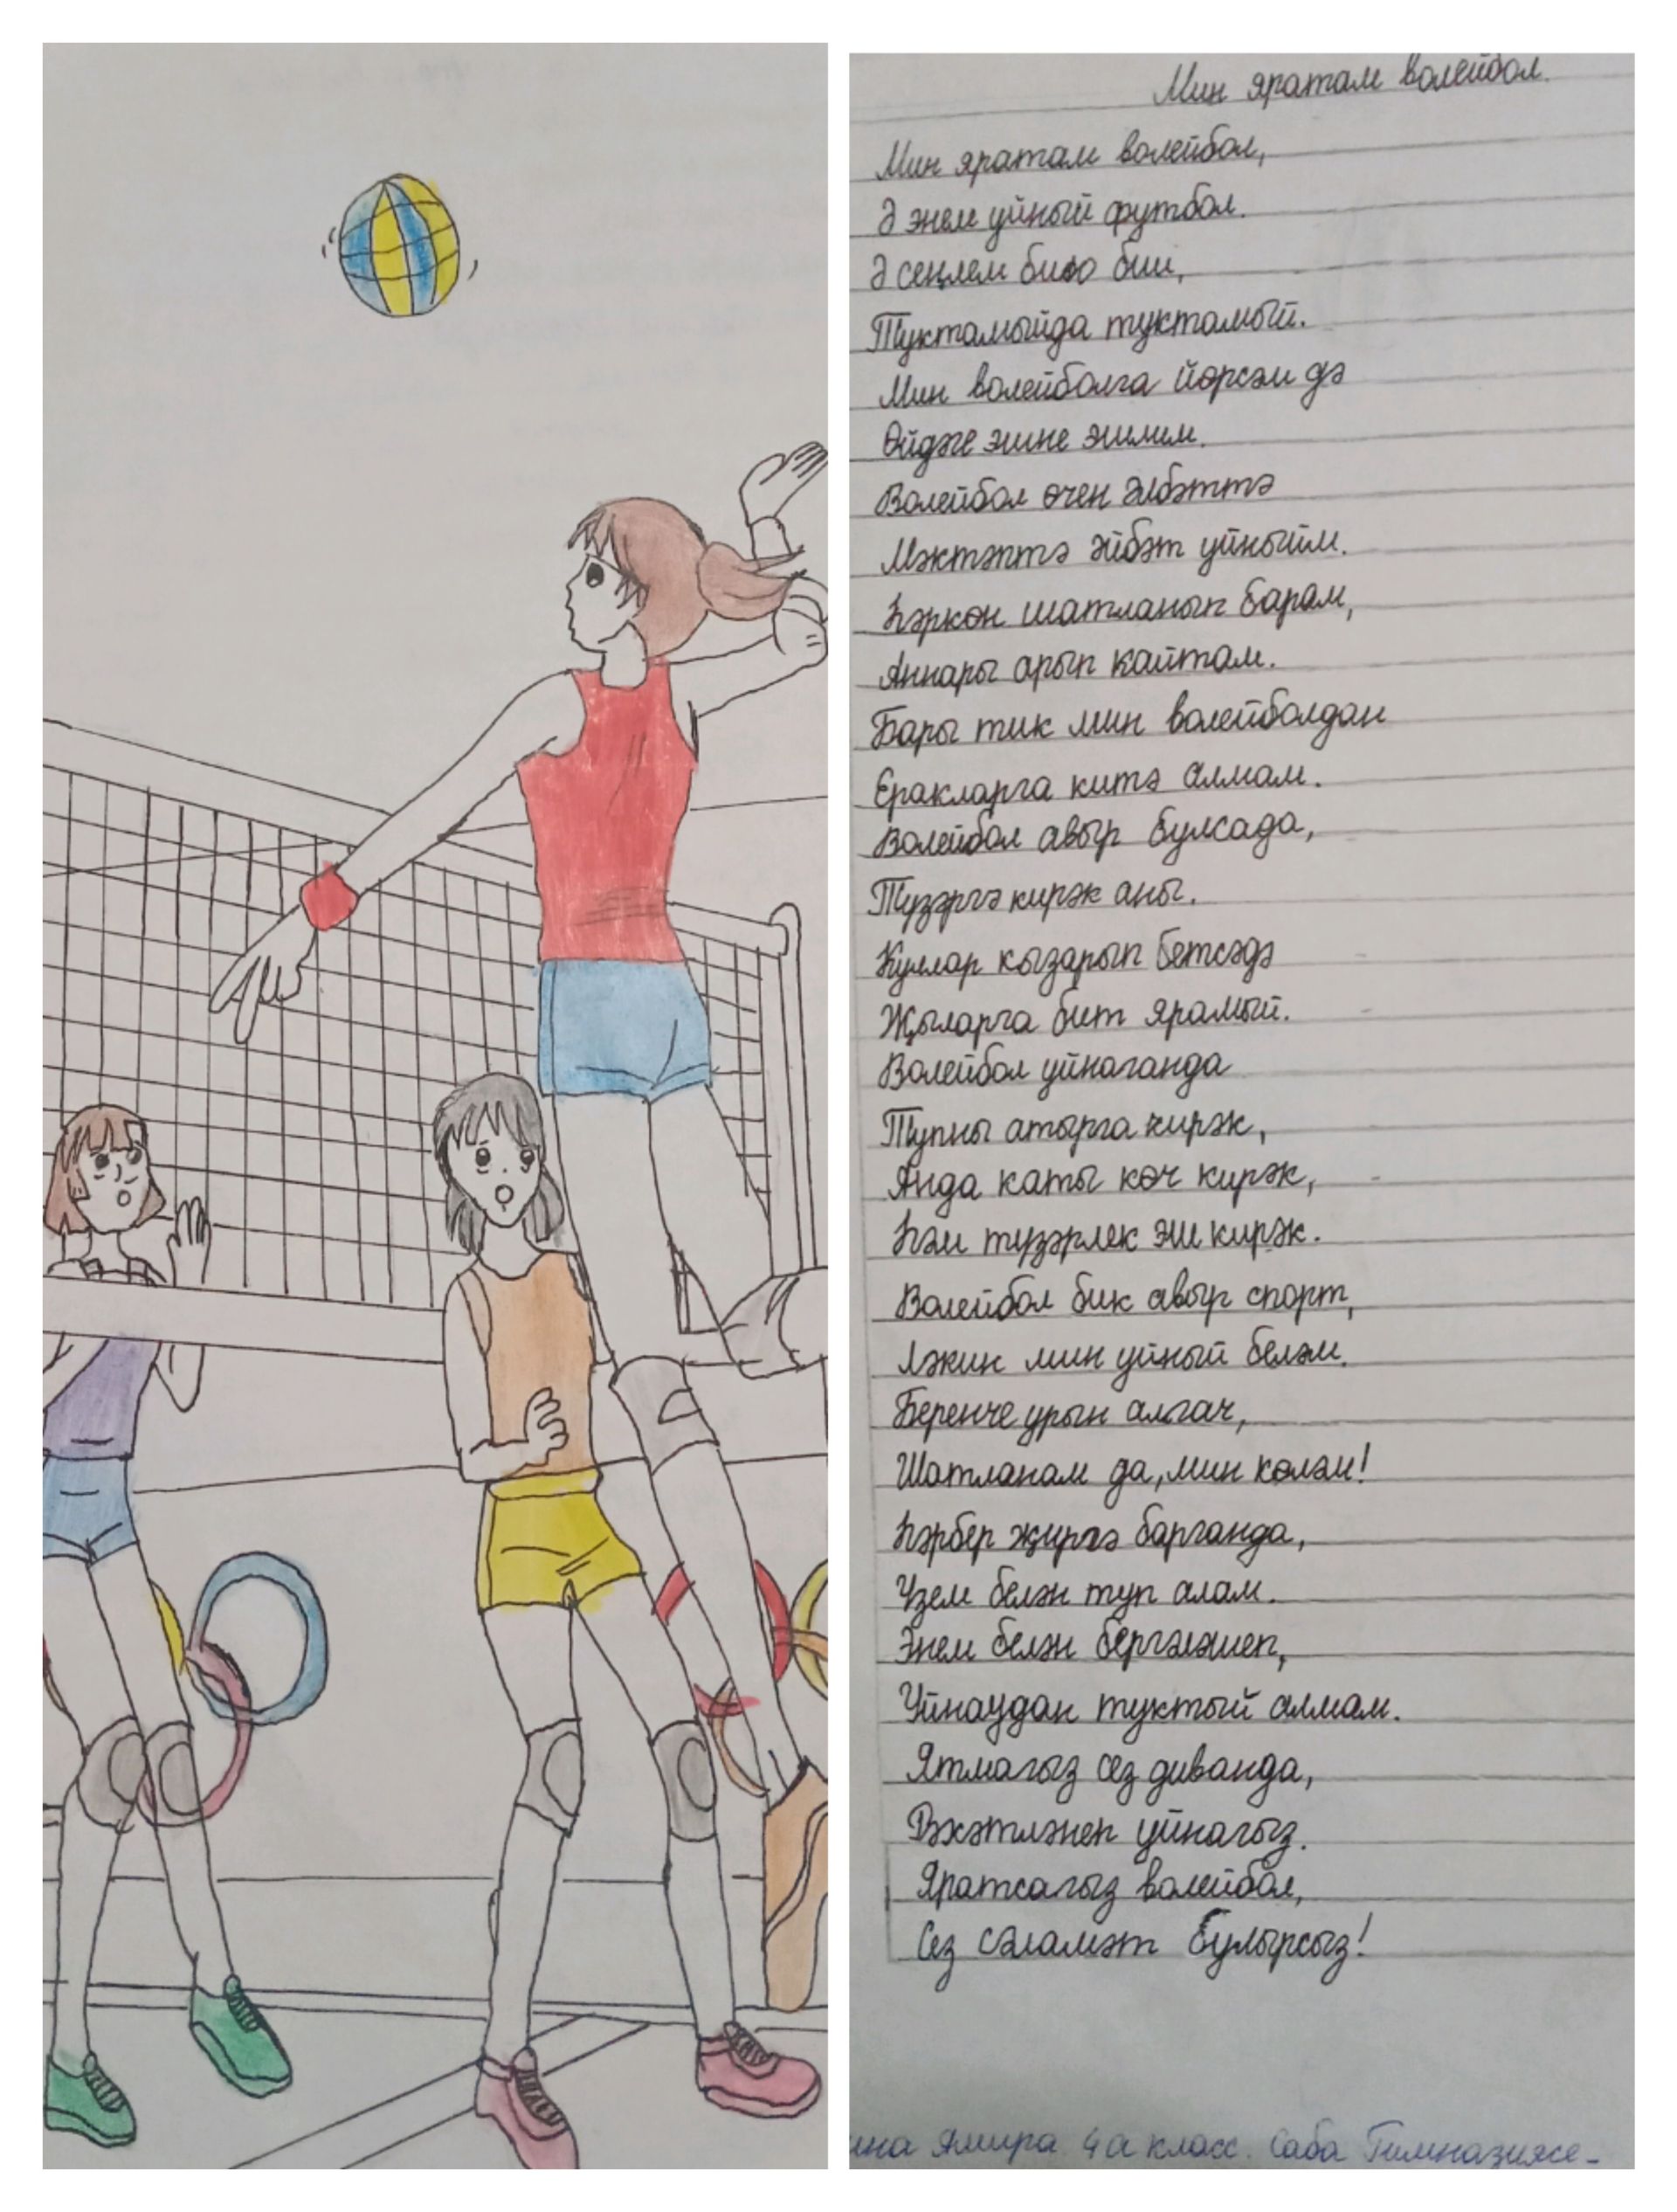 Мин яратам волейбол.
Мин яратам волейбол,
Ә энем уйный футбол.
Ә сеңлем бию бии,
Туктамыйда туктамый.
Мин волейболга йөрсәм дә
Өйдәге эшне эшлим.
Волейбол өчен әлбәттә
Мәктәптә әйбәт уйныйм.
Һәркөн шатланып барам,
Аннары арып кайтам.
Бары тик мин волейболдан
Еракларга китә алмам.
Волейбол авыр булсада,
Түзәргә кирәк аны.
Куллар кызарып бетсәдә
Җыларга бит ярамый.
Волейбол уйнаганда
Тупны атырга кирәк,
Анда каты көч кирәк,
Һәм түзәрлек эш кирәк.
Волейбол бик авыр спорт,
Ләкин мин уйный беләм.
Беренче урын алгач,
Шатланам да, мин көләм!
Һәрбер җиргә барганда,
Үзем белән туп алам.
Энем белән бергәләшеп,
Уйнаудан туктый алмам.
Ятмагыз сез диванда,
Рәхәтләнеп уйнагыз.
Яратсагыз волейбол,
Сез сәламәт булырсыз!
ина Амира 4а класс. Саба Гимназиясе-